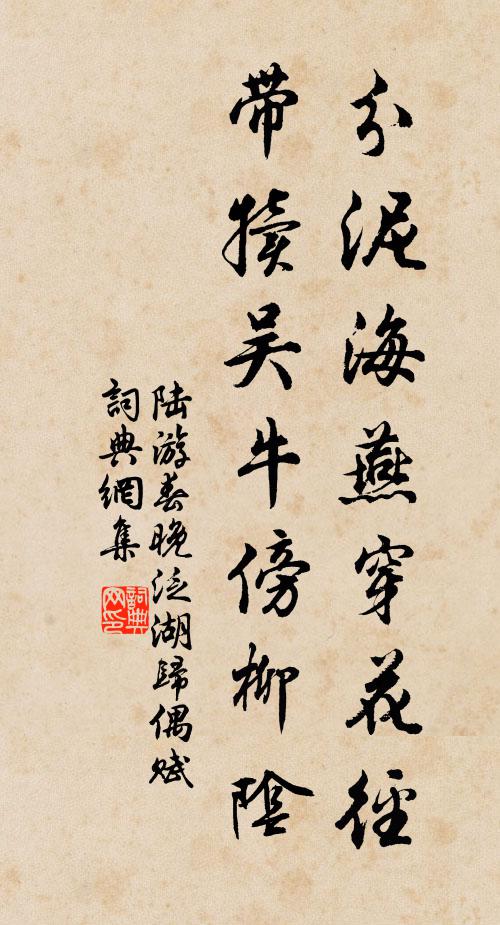 分泥海燕穿花徑
带犊吴牛傍柳陰
陆游春晚泛湖歸偶赋
詞典網集
詞典网印